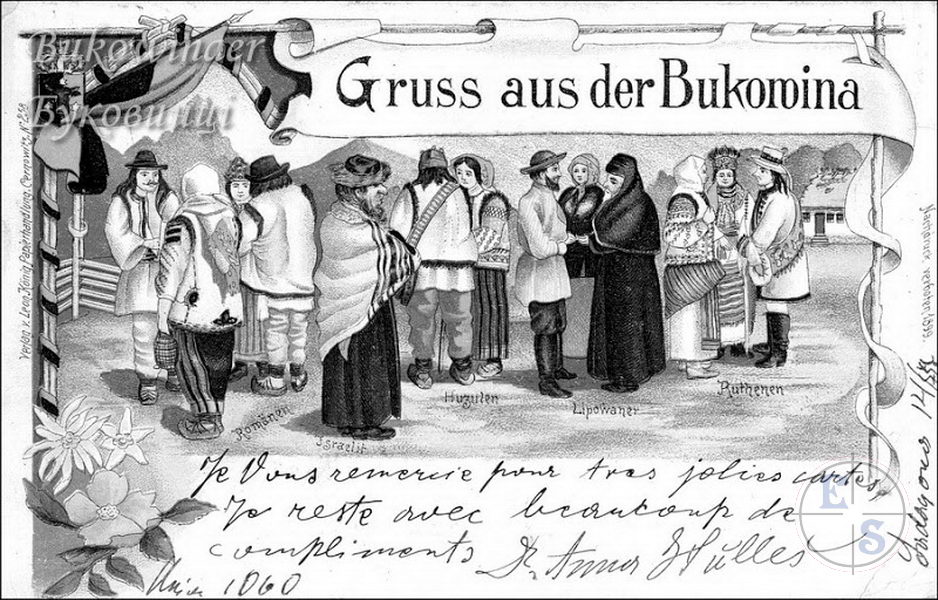 Bukowinaer
Буковинці
Gruss aus der Bukowina
Verlag v. Leon König, Papierhandlung, Czernowitz, N. 258
Nachdruck verboten 1899.
Romänen
Israelit
Huzulen
Lipowaner
Ruthenen
Je Vous remercie pour tres jolies cartes
Je reste avec beaucoup de
compliments
Dr Anna
1060
14/
E
S